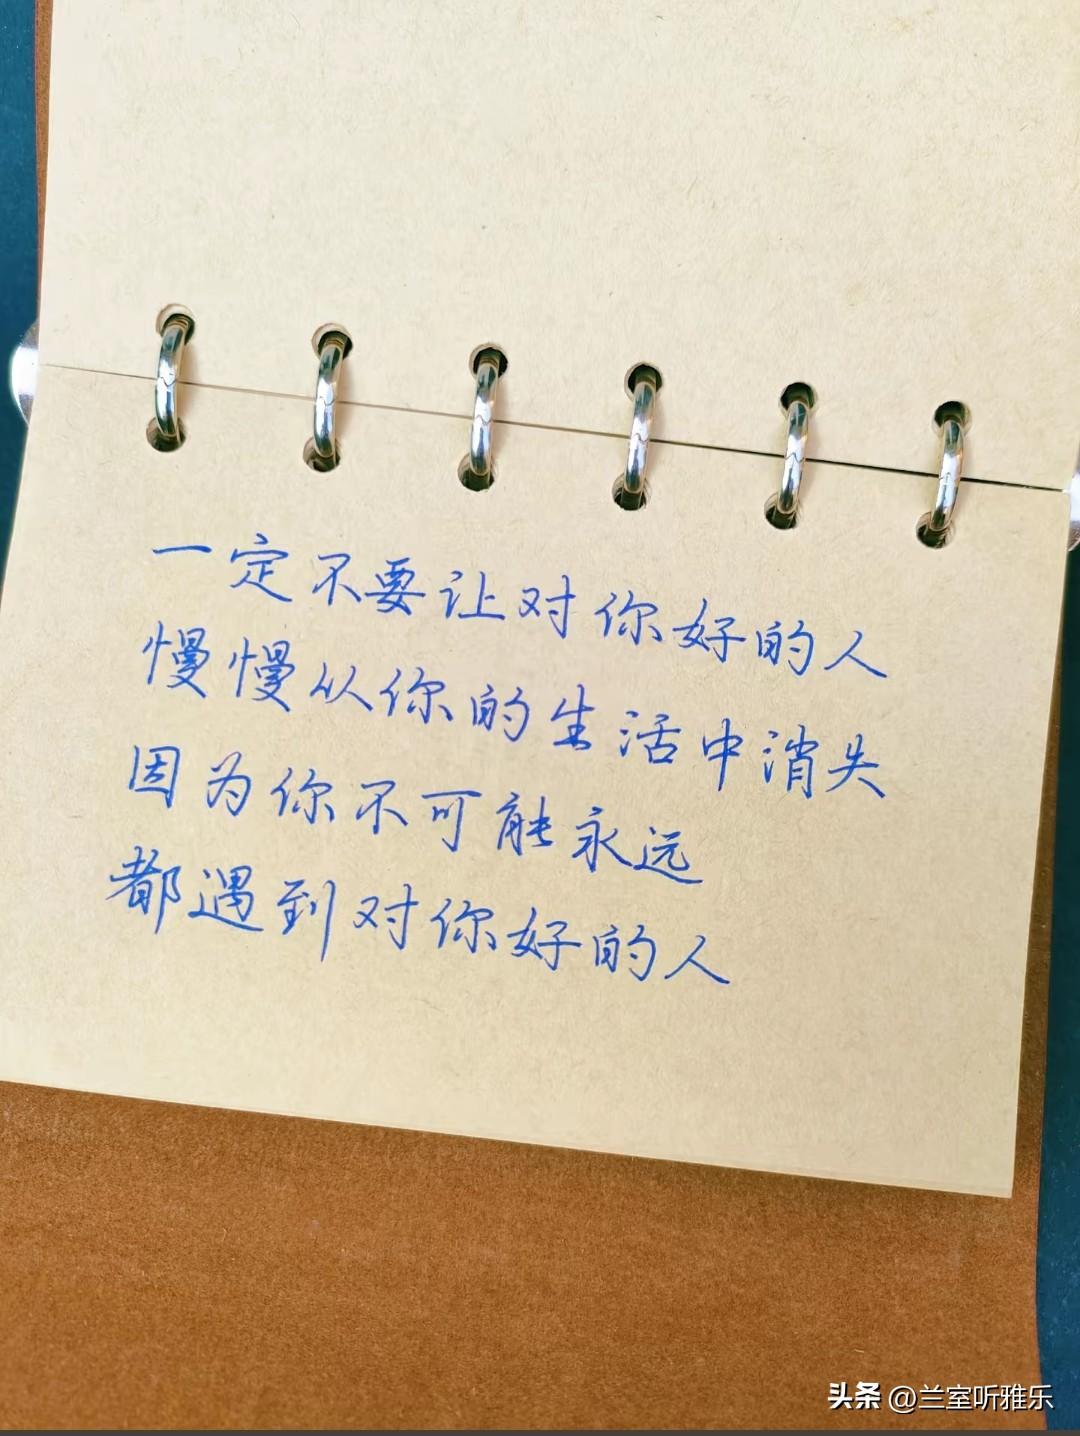 一定不要让对你好的人
慢慢从你的生活中消失
因为你不可能永远
都遇到对你好的人
头条 @兰室听雅乐